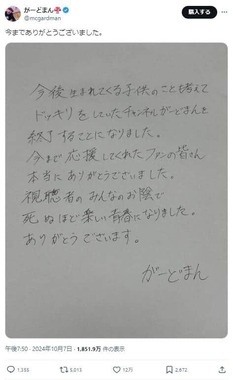 がーどまん
@mcgardman
購入する
今までありがとうございました。
今後生まれてくる子供のことも考えて
ドッキリをしていたチャンネルがーどまんを
終了することになりました。
今まで応援してくれたファンの皆さん
本当にありがとうございました。
視聴者のみんなのお陰で
死ぬほど楽しい青春になりました。
ありがとうございます。
がーどまん
午後7:50 · 2024年10月7日 · 1,851.9万 件の表示
1,355
5,013
12万
2,672